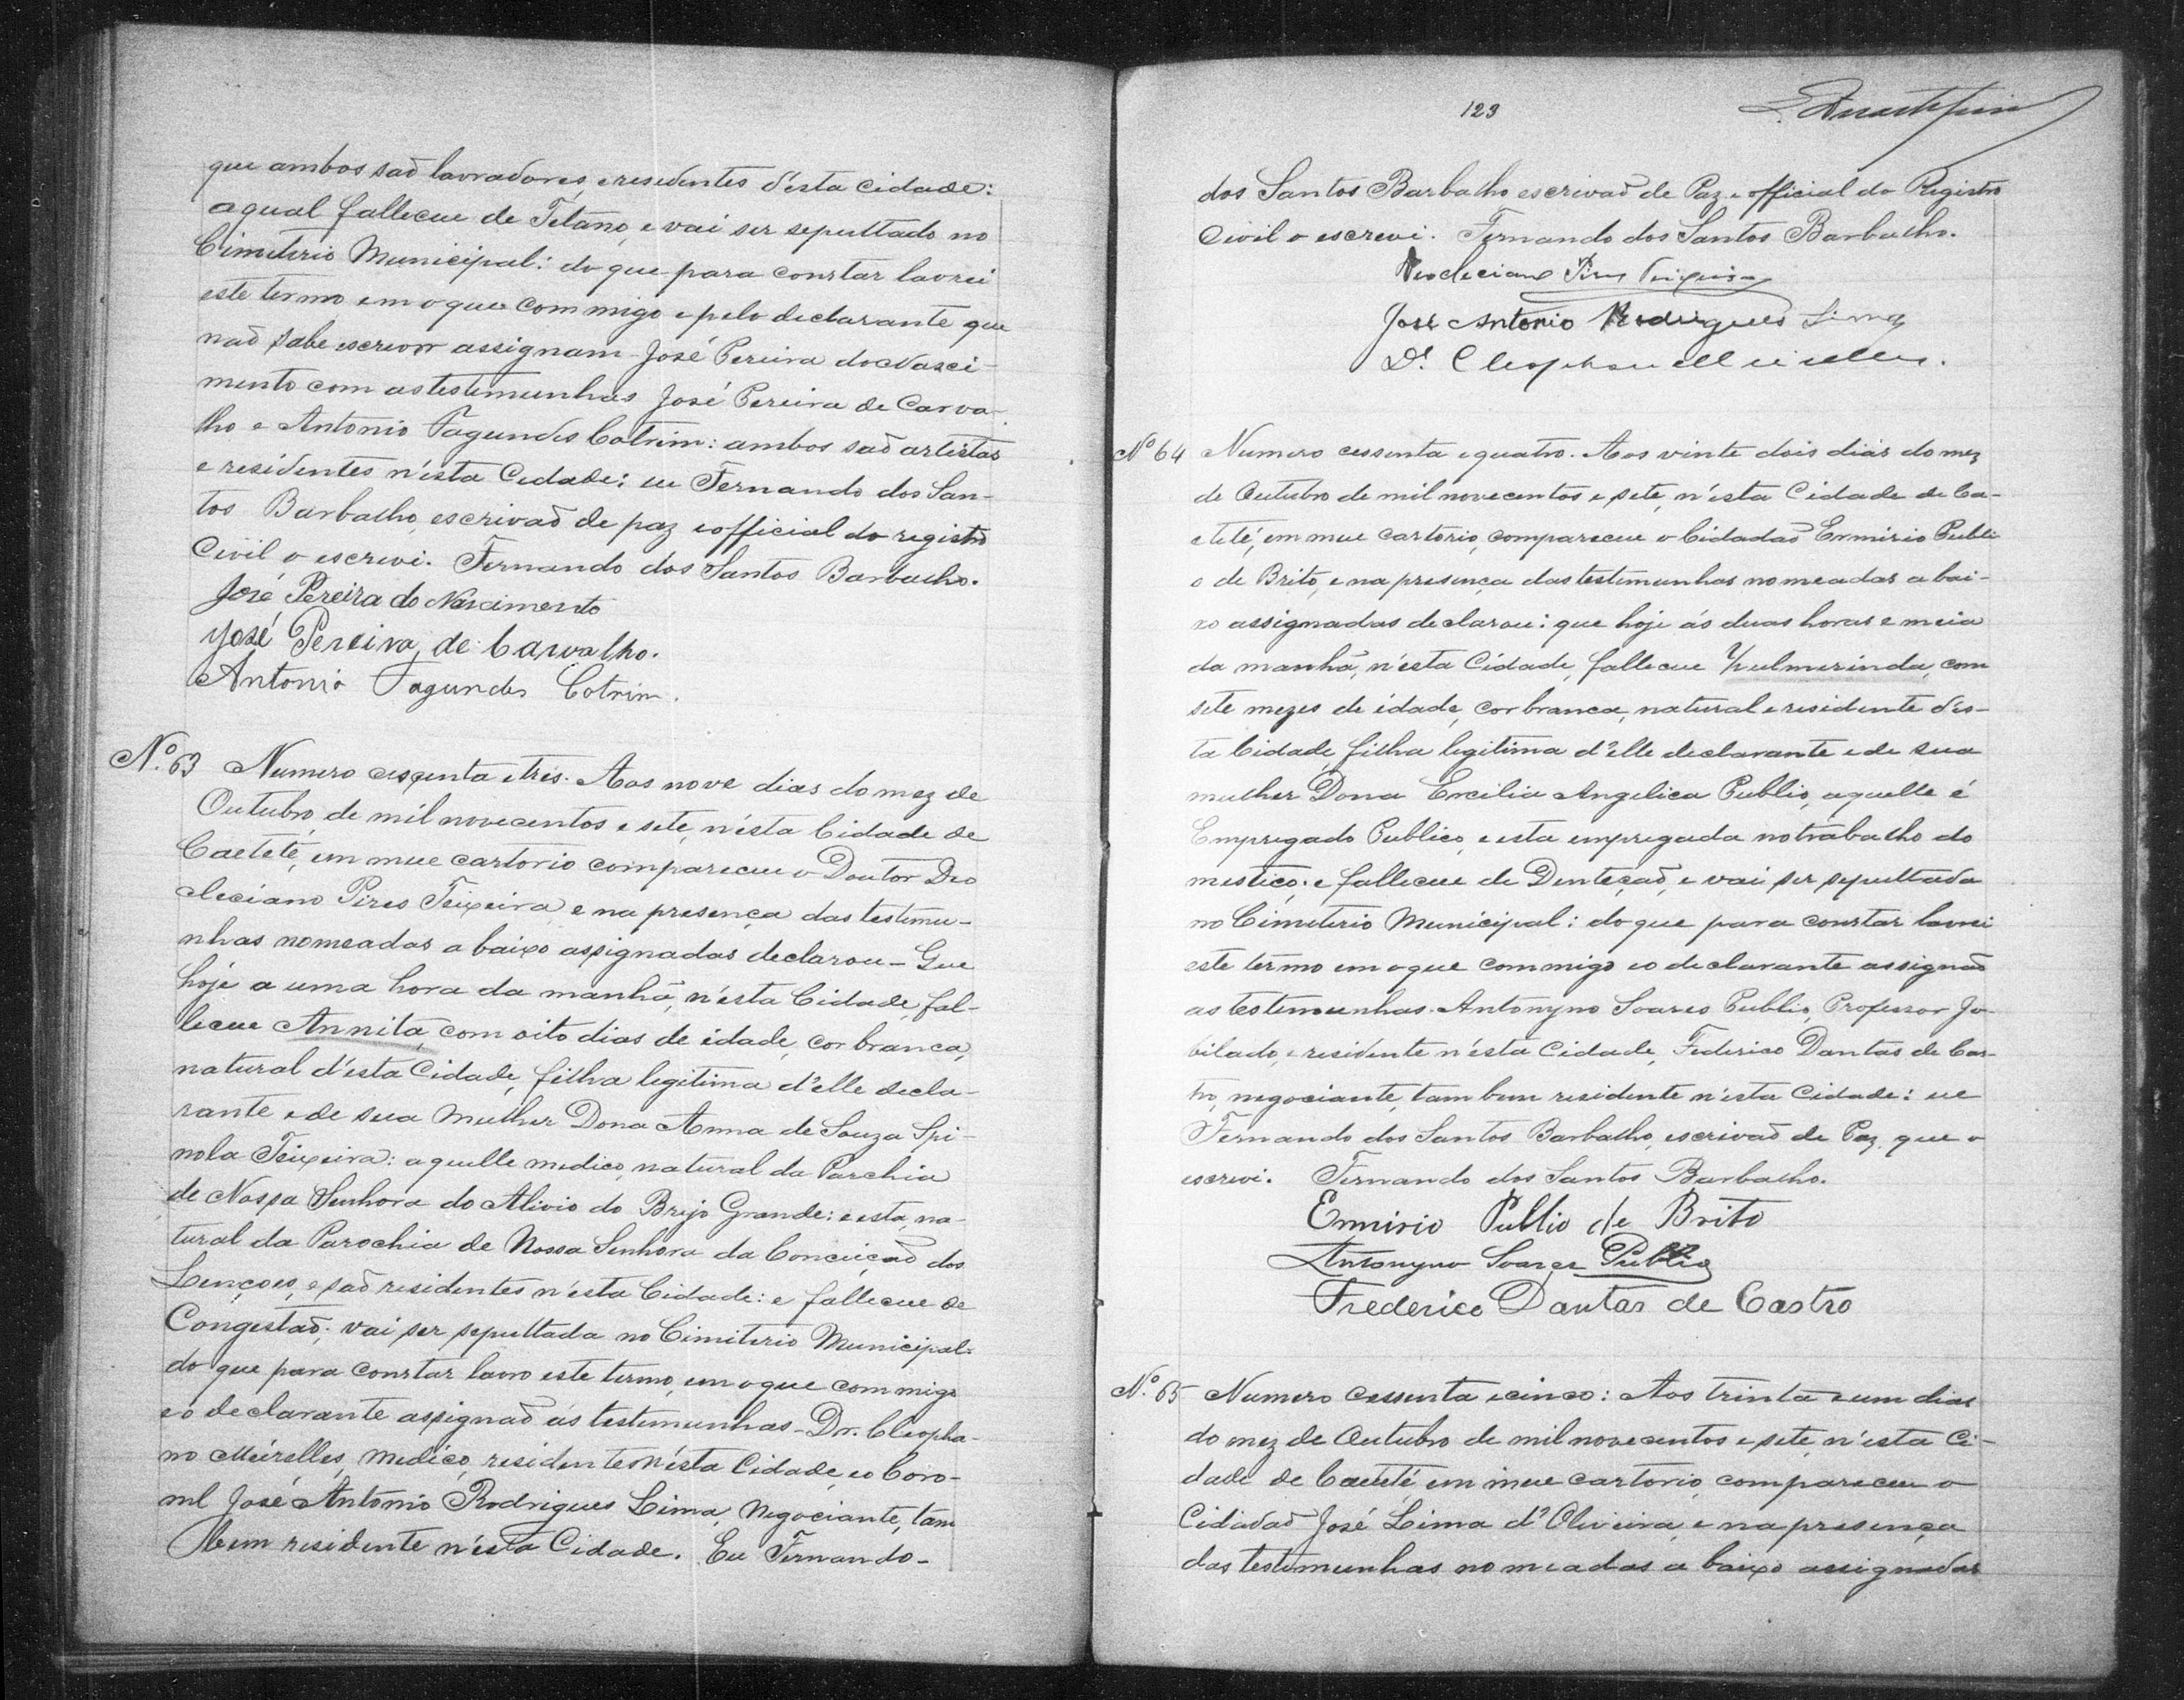 que ambos saõ lavradores, e residentes d'esta Cidade:
a qual falleceu de Tétano, e vai ser sepultado no
Cimiterio Municipal: do que para constar lavrei
este termo em o que commigo e pelo declarante que
naõ sabe escrever assignam José Pereira do Nasci-
mento com as testemunhas José Pereira de Carva-
lho e Antonio Fagundes Cotrim: ambos saõ artistas
e residentes n'ésta Cidade: eu Fernando dos San-
tos Barbalho, escrivaõ de paz e official do registro
Civil o escrevi. Fernando dos Santos Barbalho.
José Pereira do Nascimento
José Pereira, de Carvalho.
Antonio Fagundes Cotrim.
Nº. 63 Numero cessenta e tres. Aos nove dias do mez de
Outubro de mil novecentos e sete, n'ésta Cidade de
Caeteté, em meu cartorio compareceu o Doutor Deo
cleciano Pires Teixeira e na presença das testemu-
nhas nomeadas a baixo assignadas declarou - Que
hoje a uma hora da manhã, n'ésta Cidade, fal-
leceu Annita, com oito dias de idade, cor branca,
natural d'ésta Cidade, filha legitima d'elle decla-
rante e de sua Mulher Dona Anna de Souza Spi-
nola Teixeira: aquelle medico, natural da Parchia
de Nossa Senhora do Alivio do Brejo Grande: e esta, na-
tural da Parochia de Nossa Senhora da Conceiçaõ dos
Lençoes, e saõ residentes n'ésta Cidade: e falleceu de
Congestaõ; vai ser sepultada no Cimiterio Municipal:
do que para constar lavro este termo, em o que commigo
e o declarante assignaõ ás testemunhas - Dr. Cleopha-
no Meirelles, Medico, residente n'ésta Cidade, e o Coro-
nel José Antonio Rodrigues Lima, Negociante, tam
bem residente n'ésta Cidade. Eu Fernando-
123
dos Santos Barbalho escrivaõ de Paz e official do Registro
Civil o escrevi. Fernando dos Santos Barbalho.
Deocleciano Pires Teixeira
José Antonio Rodrigues Lima
Dr. Cleophano Meirelles.
Nº 64 Numero cessenta e quatro. Aos vinte dois dias do mez
de Outubro de mil novecentos e sete, n'ésta Cidade de Ca-
eteté, em meu cartorio, compareceu o Cidadaõ Ermirio Publi
o de Brito, e na presença das testemunhas nomeadas a bai-
xo assignadas declarou: que hoje ás duas horas e meia
da manhã, n'ésta Cidade, falleceu Ulmerinda, com
sete mezes de idade, cor branca, natural e residente d'es-
ta Cidade, filha legitima d'elle declarante e de sua
mulher Dona Ercilia Angelica Publio, aquelle é
Empregado Publico, e esta empregada no trabalho do
mestico; e falleceu de Denteçaõ, e vai ser sepultada
no Cimiterio Municipal: do que para constar lavrei
este termo em o que commigo e o declarante assignaõ
as testemunhas. Antonyno Soares Publio, Professor Ju-
bilado, e residente n'ésta Cidade, Federico Dantas de Cas-
tro, negociante, tam bem residente n'ésta Cidade: eu
Fernando dos Santos Barbalho, escrivaõ de Paz, que o
escrevi. Fernando dos Santos Barbalho.
Ermirio Publio de Brito
Antonyno Soares Publio
Frederico Dantas de Castro
Nº. 65 Numero cessenta e cinco: Aos trinta e um dias
do mez de Outubro de mil novecentos e sete, n'esta Ci-
dade de Caeteté, em meu cartorio, compareceu o
Cidadaõ José Lima d'Oliveira, e na presença
das testemunhas nomeadas a baixo assignadas